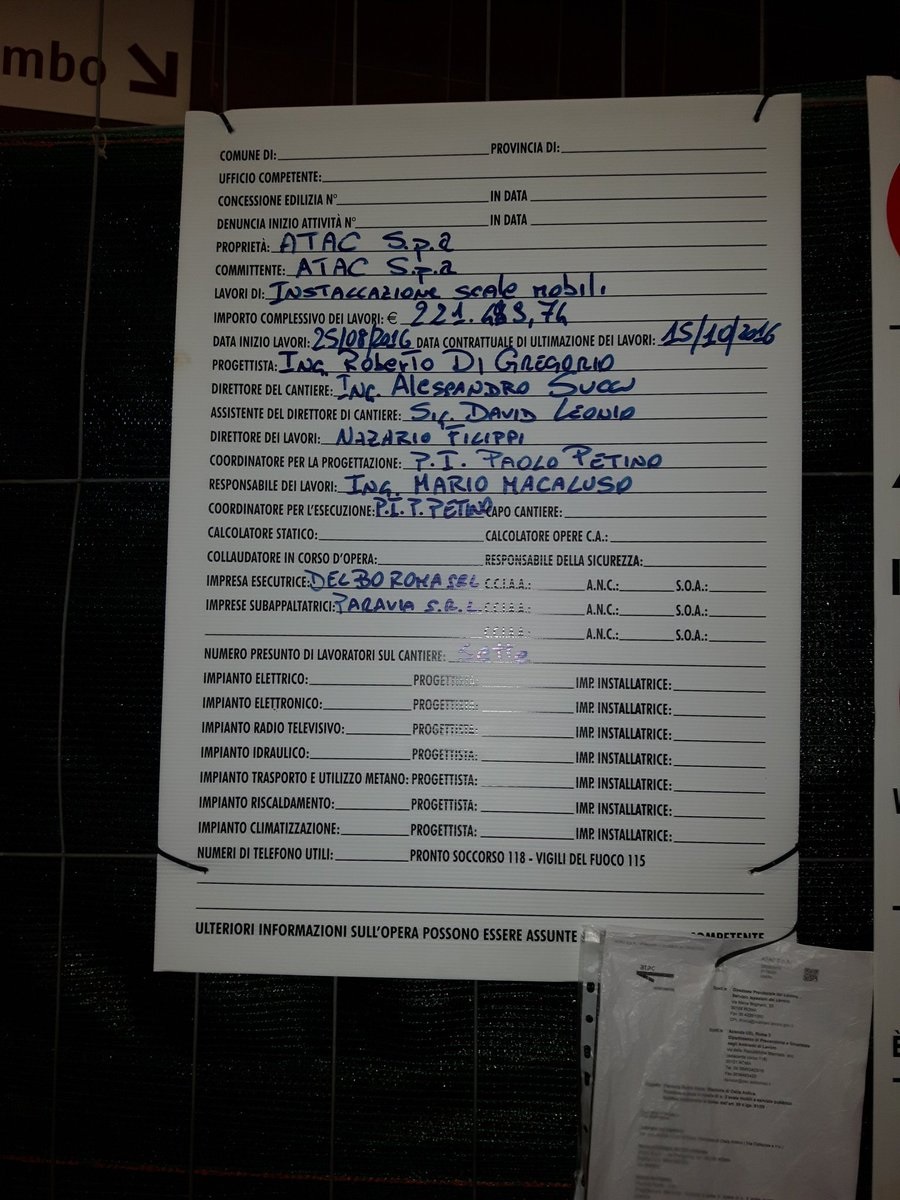 mbo
COMUNE DI: PROVINCIA DI:
UFFICIO COMPETENTE:
CONCESSIONE EDILIZIA N° IN DATA
DENUNCIA INIZIO ATTIVITÀ N° IN DATA
PROPRIETÀ: ATAC S.p.a
COMMITTENTE: ATAC S.p.a
LAVORI DI: INSTALLAZIONE scale mobili
IMPORTO COMPLESSIVO DEI LAVORI: €
DATA INIZIO LAVORI: 25/08/2016 DATA CONTRATTUALE DI ULTIMAZIONE DEI LAVORI: 15/10/2016
PROGETTISTA: ING. Roberto DI GREGORIO
DIRETTORE DEL CANTIERE: ING. ALESSANDRO
ASSISTENTE DEL DIRETTORE DI CANTIERE: Sig. DAVID LEONIO
DIRETTORE DEI LAVORI: NAZARIO FILIPPI
COORDINATORE PER LA PROGETTAZIONE: P.I. PAOLO PETINO
RESPONSABILE DEI LAVORI: ING. MARIO MACALUSO
COORDINATORE PER L'ESECUZIONE: P.I. P. PETINO CAPO CANTIERE:
CALCOLATORE STATICO: CALCOLATORE OPERE C.A.:
COLLAUDATORE IN CORSO D'OPERA: RESPONSABILE DELLA SICUREZZA:
IMPRESA ESECUTRICE: DEL BO ROMA SRL C.C.I.A.A.: A.N.C.: S.O.A.:
IMPRESE SUBAPPALTATRICI: PARAVIA S.R.L. C.C.I.A.A.: A.N.C.: S.O.A.:
C.C.I.A.A.: A.N.C.: S.O.A.:
NUMERO PRESUNTO DI LAVORATORI SUL CANTIERE: Sette
IMPIANTO ELETTRICO: PROGETTISTA: IMP. INSTALLATRICE:
IMPIANTO ELETTRONICO: PROGETTISTA: IMP. INSTALLATRICE:
IMPIANTO RADIO TELEVISIVO: PROGETTISTA: IMP. INSTALLATRICE:
IMPIANTO IDRAULICO: PROGETTISTA: IMP. INSTALLATRICE:
IMPIANTO TRASPORTO E UTILIZZO METANO: PROGETTISTA: IMP. INSTALLATRICE:
IMPIANTO RISCALDAMENTO: PROGETTISTA: IMP. INSTALLATRICE:
IMPIANTO CLIMATIZZAZIONE: PROGETTISTA: IMP. INSTALLATRICE:
NUMERI DI TELEFONO UTILI: PRONTO SOCCORSO 118 - VIGILI DEL FUOCO 115
ULTERIORI INFORMAZIONI SULL'OPERA POSSONO ESSERE ASSUNTE